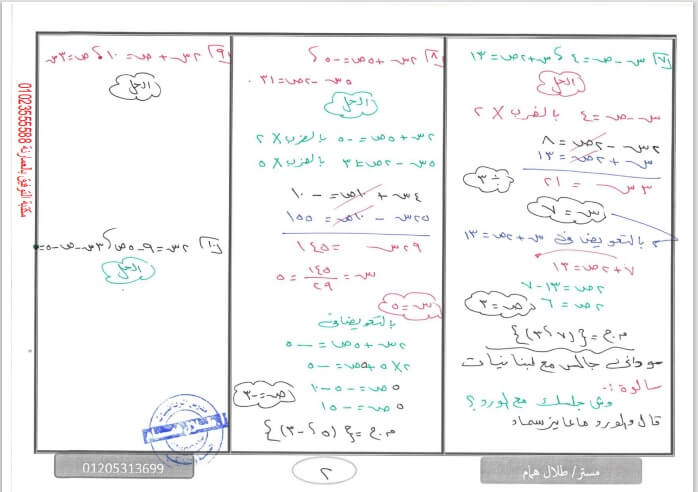 [٧] س - ص = ٤ ، س + ٢ص = ١٣
الحل
س - ص = ٤ بالضرب × ٢
٢س - ٢ص = ٨
س + ٢ص = ١٣
٣س = ٢١
÷ ٣
س = ٧
بالتعويض في س + ٢ص = ١٣
٧ + ٢ص = ١٣
٢ص = ١٣ - ٧
٢ص = ٦
ص = ٣
م.ح = {(٧ ، ٣)}
سوداني جالس مع لبنانيات
سالوة :-
وش جلسك مع الورد؟
قال والورد ما عايز سماد
[٨] ٢س + ٥ص = -٥ ،
٥س - ٢ص = ٣١
الحل
٢س + ٥ص = -٥ بالضرب × ٢
٥س - ٢ص = ٣١ بالضرب × ٥
٤س + ١٠ص = -١٠
٢٥س - ١٠ص = ١٥٥
٢٩س = ١٤٥
س = ١٤٥/٢٩ = ٥
س = ٥
بالتعويض في
٢س + ٥ص = -٥
٢ × ٥ + ٥ص = -٥
٥ص = -٥ - ١٠
٥ص = -١٥
ص = -٣
م.ح = {(٥ ، -٣)}
[٩] ٢س + ص = ١٠ ، ص = ٣س
الحل
[١٠] ٢س = ٩ - ٥ص ، ٣س - ص - ٥ = ٠
الحل
مكتبة التوفيق بالعمرانية 01023555588
مستر / طلال همام
٢
01205313699